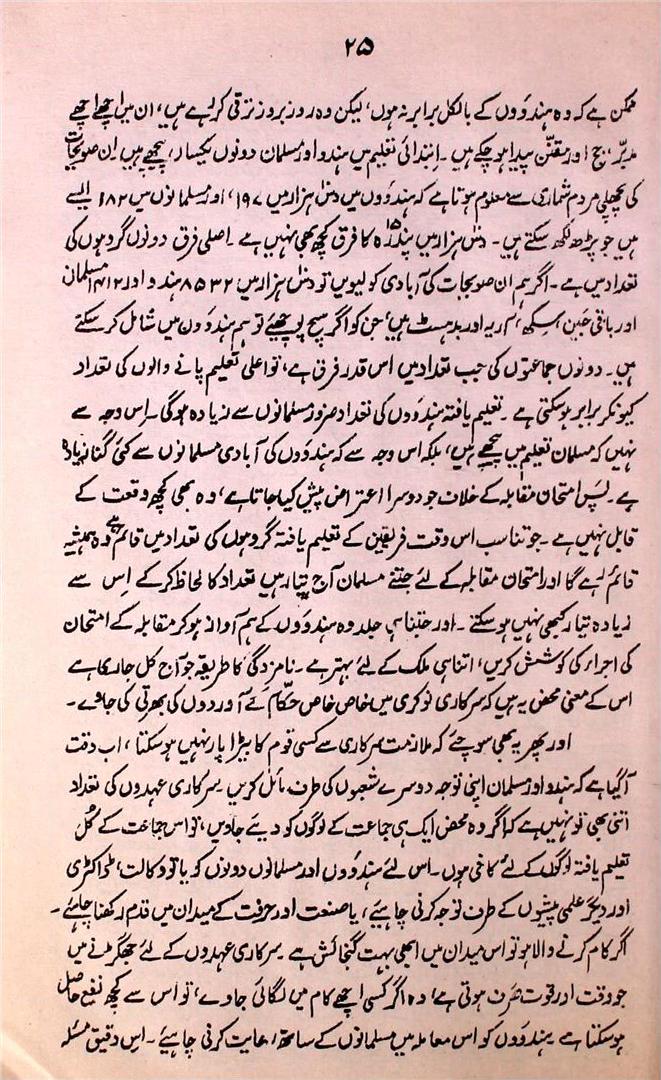 ۲۵
ممکن ہے کہ وہ ہندوؤں کے بالکل برابر نہ ہوں، لیکن وہ روز بروز ترقی کر رہے ہیں، ان میں اچھے اچھے
مدبّر، جج اور مقنّن پیدا ہو چکے ہیں۔ ابتدائی تعلیم میں ہندو اور مسلمان دونوں یکساں پیچھے ہیں۔ ان صوبجات
کی پچھلی مردم شماری سے معلوم ہوتا ہے کہ ہندوؤں میں دس ہزار میں ۱۹۷، اور مسلمانوں میں ۱۸۲ ایسے
ہیں جو پڑھ لکھ سکتے ہیں۔ دس ہزار میں پندرہ ۱۵ کا فرق کچھ بھی نہیں ہے۔ اصلی فرق دونوں گروہوں کی
تعداد میں ہے۔ اگر ہم ان صوبجات کی آبادی کو لیویں تو دس ہزار میں ۸۵۳۲ ہندو اور ۱۴۱۲ مسلمان
اور باقی جین، سکھ، آریہ اور بدہسٹ ہیں، جن کو اگر سچ پوچھیے تو ہم ہندوؤں میں شامل کر سکتے
ہیں۔ دونوں جماعتوں کی جب تعداد میں اس قدر فرق ہے، تو اعلیٰ تعلیم پانے والوں کی تعداد
کیونکر برابر ہو سکتی ہے۔ تعلیم یافتہ ہندوؤں کی تعداد ضرور مسلمانوں سے زیادہ ہوگی۔ اس وجہ سے
نہیں کہ مسلمان تعلیم میں پیچھے ہیں، بلکہ اس وجہ سے کہ ہندوؤں کی آبادی مسلمانوں سے کئی گنا زیادہ
ہے۔ پس امتحان مقابلہ کے خلاف جو دوسرا اعتراض پیش کیا جاتا ہے، وہ بھی کچھ وقعت کے
قابل نہیں ہے۔ جو تناسب اس وقت فریقین کے تعلیم یافتہ گروہوں کی تعداد میں قائم ہے وہ ہمیشہ
قائم رہے گا اور امتحان مقابلہ کے لئے جتنے مسلمان آج تیار ہیں تعداد کا لحاظ کر کے اس سے
زیادہ تیار کبھی نہیں ہو سکتے۔ اور جتنا ہی جلد وہ ہندوؤں کے ہم آواز ہو کر مقابلہ کے امتحان
کی اجراء کی کوشش کریں، اتنا ہی ملک کے لئے بہتر ہے۔ نامزدگی کا طریقہ جو آج کل جاری ہے
اس کے معنی محض یہ ہیں کہ سرکاری نوکری میں خاص خاص حکّام کے آوردوں کی بھرتی کی جاوے۔
اور پھر یہ بھی سوچئے کہ ملازمت سرکاری سے کسی قوم کا بیڑا پار نہیں ہو سکتا، اب وقت
آگیا ہے کہ ہندو اور مسلمان اپنی توجہ دوسرے شعبوں کی طرف مائل کریں۔ سرکاری عہدوں کی تعداد
اتنی بھی تو نہیں ہے کہ اگر وہ محض ایک ہی جماعت کے لوگوں کو دیے جاویں، تو اس جماعت کے کُل
تعلیم یافتہ لوگوں کے لئے کافی ہوں۔ اس لئے ہندوؤں اور مسلمانوں دونوں کو یا تو وکالت، ڈاکٹری
اور دیگر علمی پیشوں کے طرف توجہ کرنی چاہیے، یا صنعت اور حرفت کے میدان میں قدم رکھنا چاہئے۔
اگر کام کرنے والا ہو تو اس میدان میں ابھی بہت گنجائش ہے۔ سرکاری عہدوں کے لئے جھگڑنے میں
جو وقت اور قوت صرف ہوتی ہے، وہ اگر کسی اچھے کام میں لگائی جاوے، تو اس سے کچھ نفع حاصل
ہو سکتا ہے۔ ہندوؤں کو اس معاملہ میں مسلمانوں کے ساتھ رعایت کرنی چاہیئے۔ اس دقیق مسئلہ